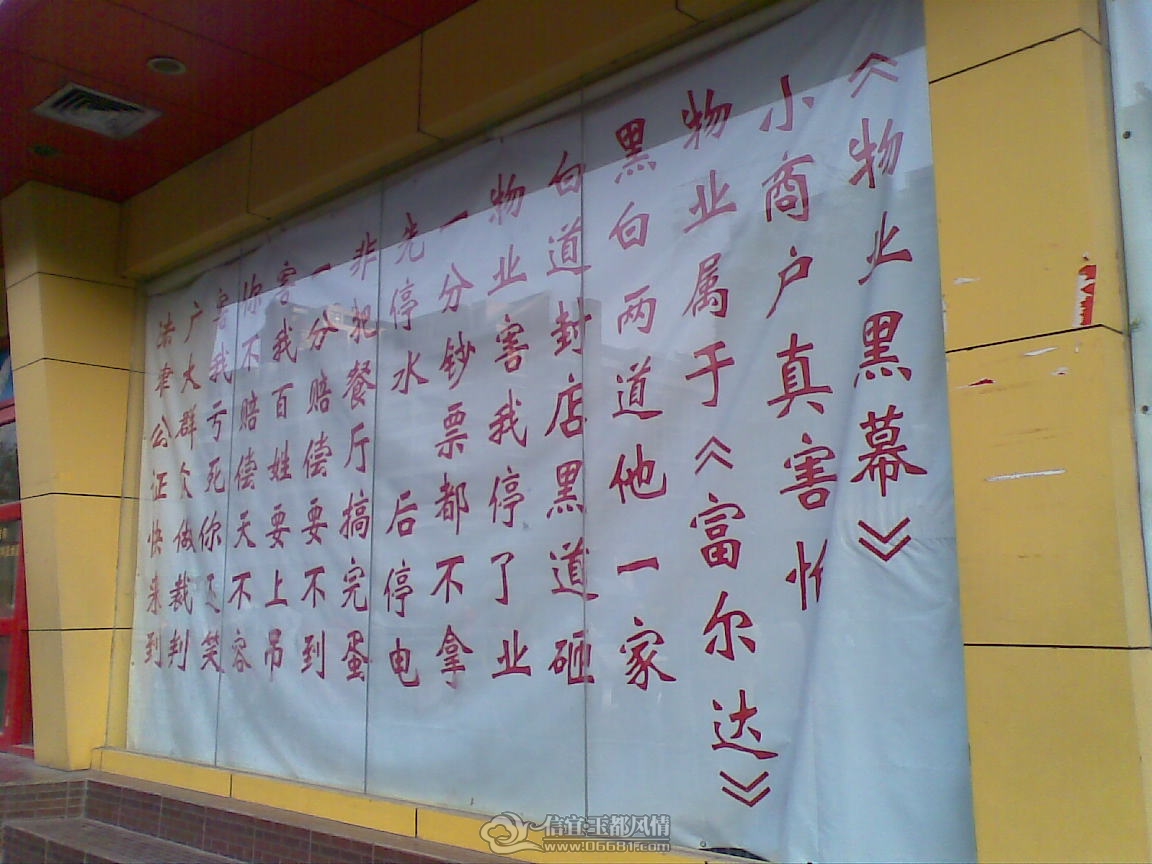 《物业黑幕》
小商户真害怕
物业属于《富尔达》
黑白两道他一家
白道封店黑道砸
物业害我停了业
一分钞票都不拿
先停水 后停电
非把餐厅搞完蛋
一分赔偿要不到
害我百姓要上吊
你不赔偿天不容
要我亏死你还笑
广大群众做裁判
法律公证快来到
信宜玉都风情
www.06681.com